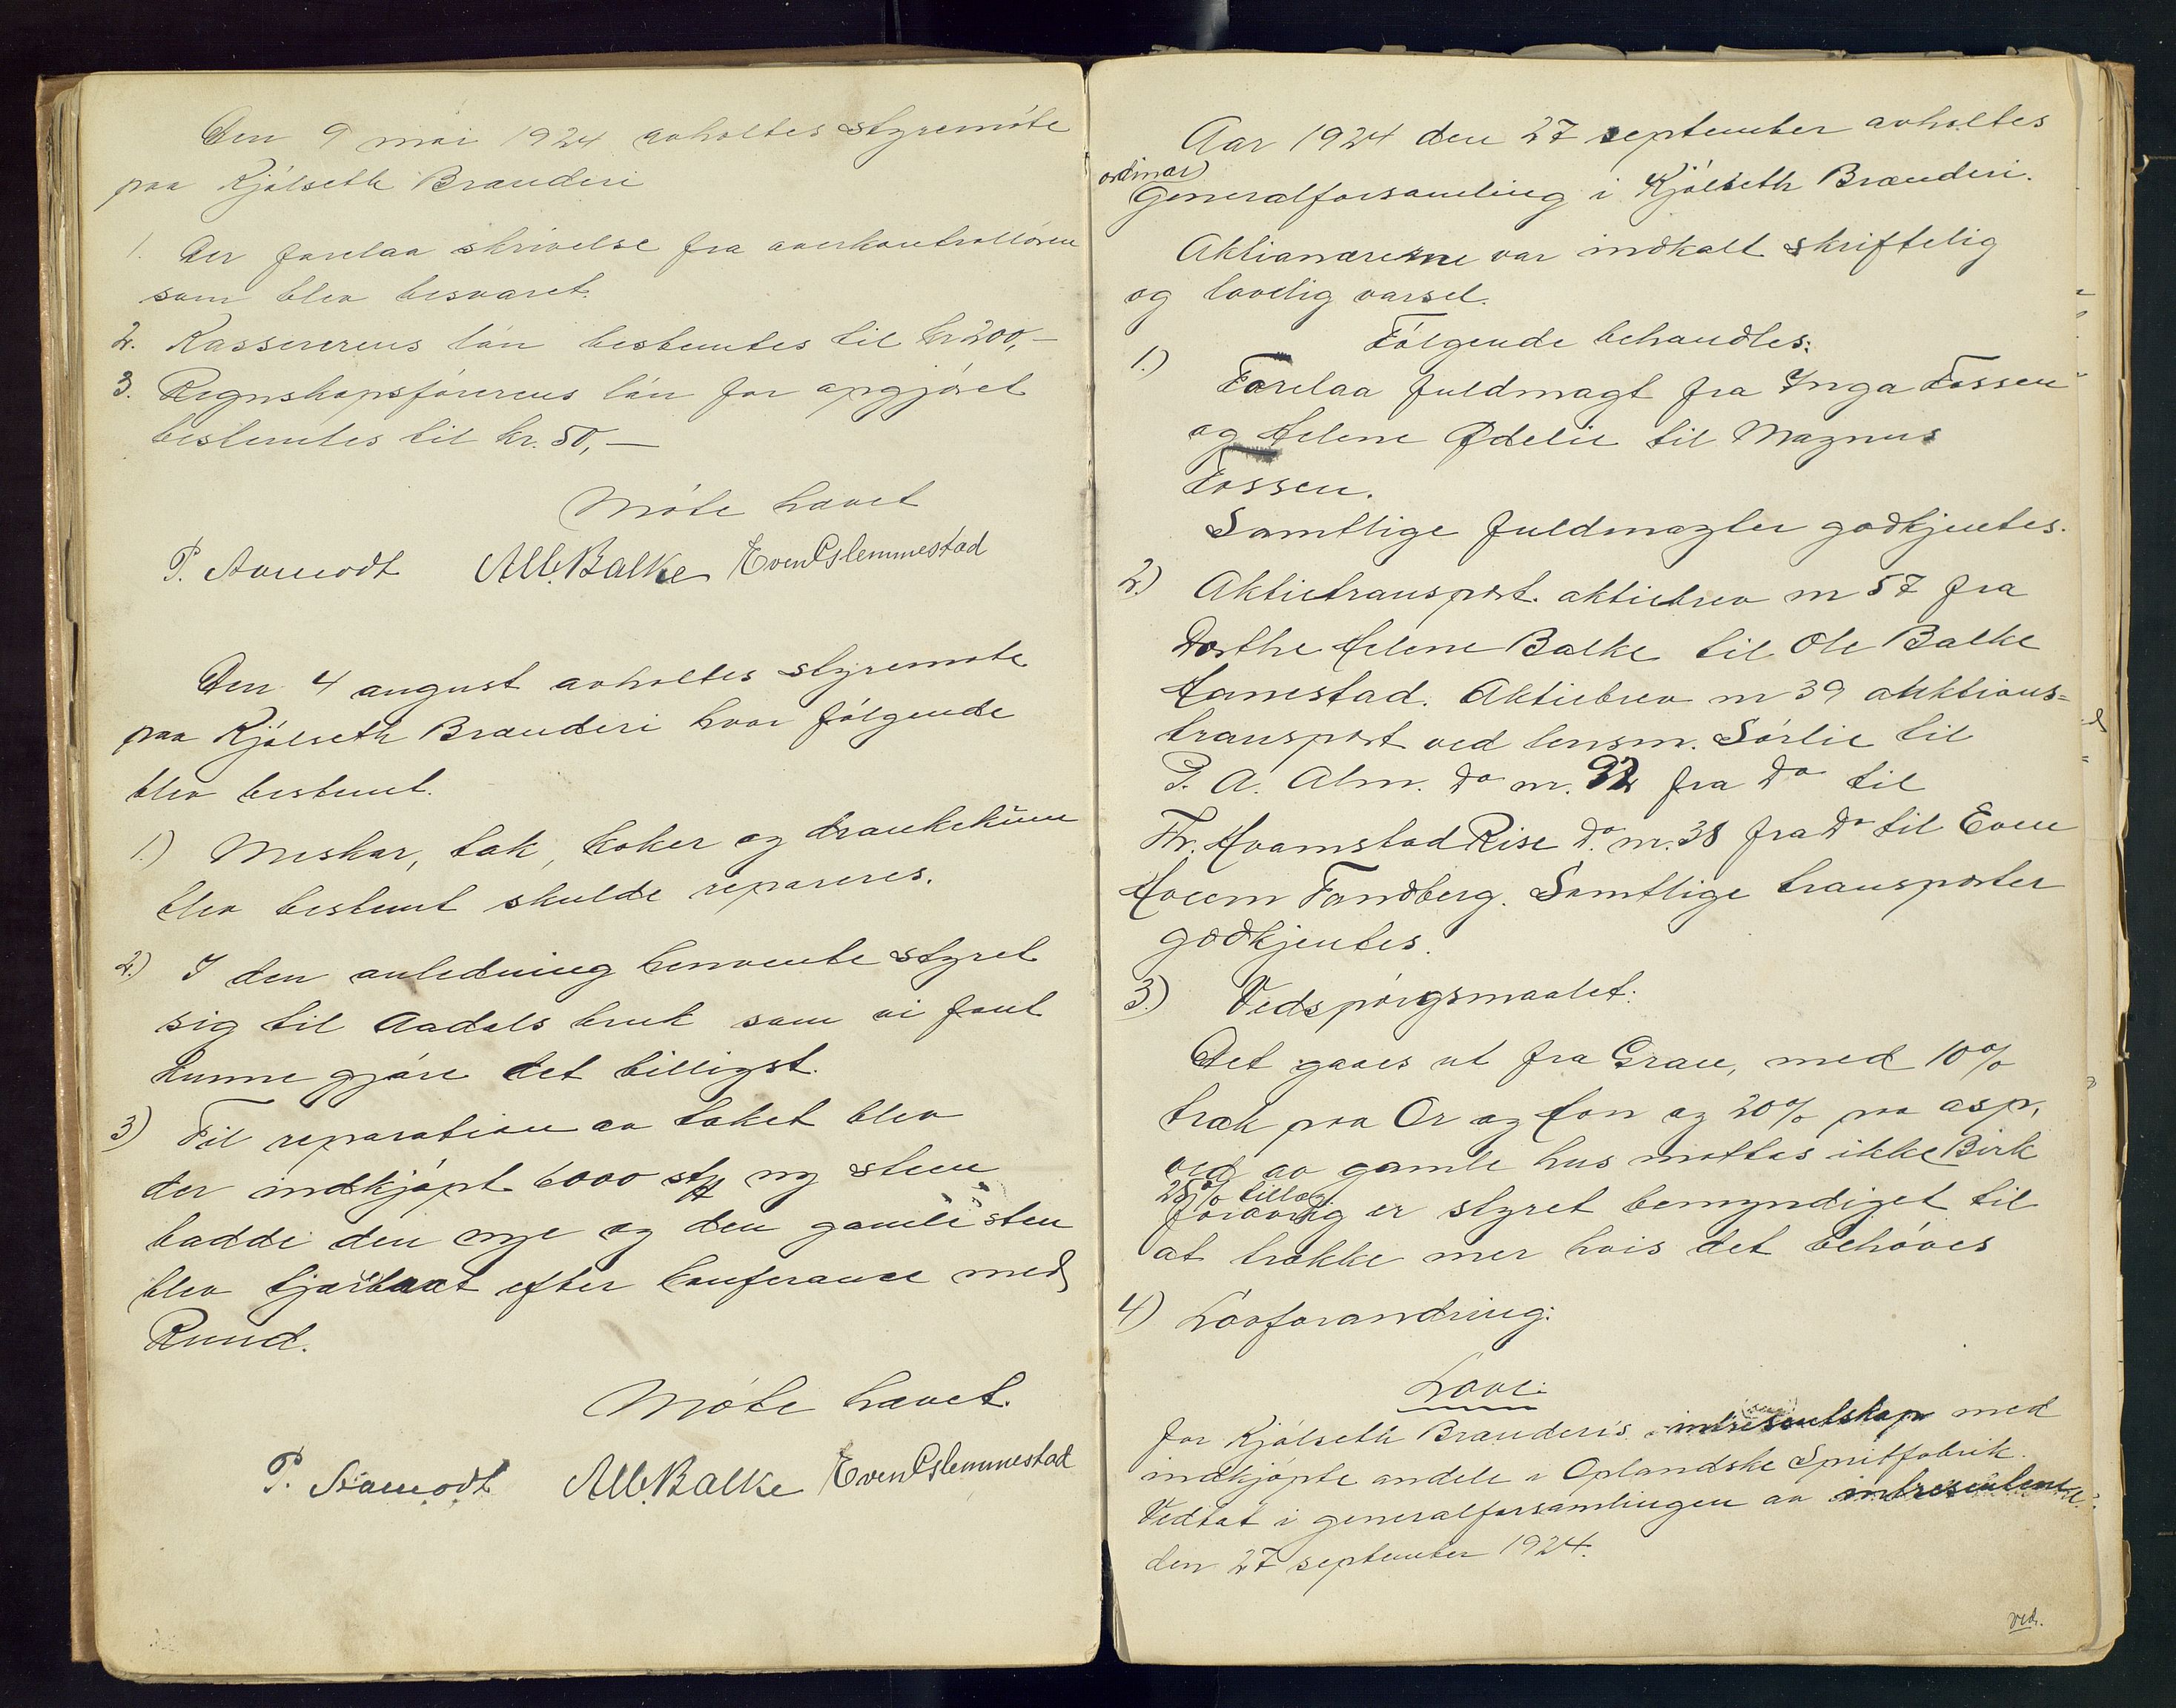 Den 9 mai 1924 avholtes styremöte
paa Kjölseth Brænderi
1. Der forelaa skrivelse fra overkontrollören
som blev besvaret.
2. Kassererens lön bestemtes til kr 200,-
3. Regnskapsförerens lön for opgjöret
bestemtes til kr. 50,-
Möte hævet
P. Aamodt Alb. Balke Even Gslemmestad
Den 4 august avholtes styremöte
paa Kjölseth Brænderi hvor fölgende
blev bestemt.
1.) Meskar, tak, koker og drankekum
blev bestemt skulde repareres.
2.) I den anledning henvente styret
sig til Aadals bruk som vi fant
kunne gjöre det billigst.
3) Til reparation av taket blev
der indkjöpt 6000 stk ny sten
baade den nye og den gamle sten
blev tjærbræt efter konferance med
Ruud.
Möte hævet.
P. Aamodt Alb. Balke Even Gslemmestad
Aar 1924 den 27 september avholtes
ordinær
Generalforsamling i Kjölseth Brænderi.
Aktionærerne var indkalt skriftelig
og lovelig varsel.
Fölgende behandles:
1.) Forelaa fuldmagt fra Inga Fossen
og Helene Ødelie til Magnus
Fossen.
Samtlige fuldmagter godkjentes.
2.) Aktietransport. aktiebrev nr 57 fra
Dorthe Helene Balke til Ole Balke
Hamestad. Aktiebrev nr 39 auktions=
transport ved lensm. Sörlie til
P. A. Alm. Do nr. 92 fra Do til
Th. Hvamstad Rise Do. nr. 38 fra Do til Even
Hoem Fandberg. Samtlige transporter
godkjentes.
3) Vedspörgsmaalet:
Det gaaes ut fra Gran, med 10%
træk paa Or og Fon og 20% paa asp,
ved av gamle hus mottas ikke Birk
25% tillæg.
forövrig er styret bemyndiget til
at trække mer hvis det behöves
4) Lovforandring:
Love:
for Kjölseth Brænderi's intresentskap med
indkjöpte andele i Oplandske Spritfabrik.
Vedtat i generalforsamlingen av intresentene
den 27 september 1924.
ved.